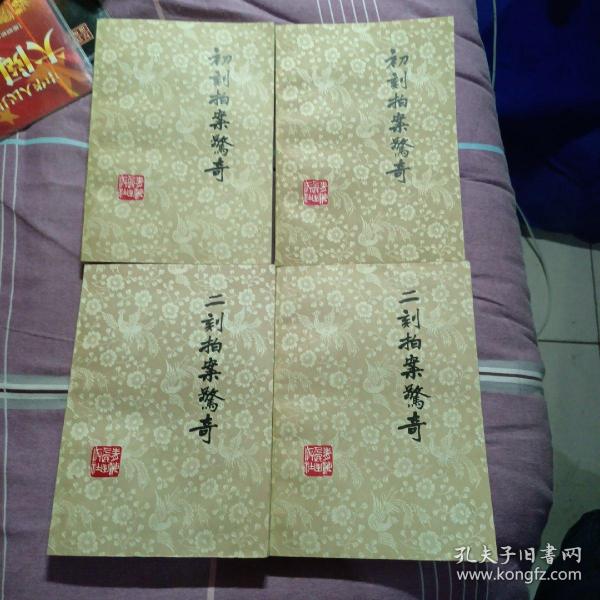 初刻拍案驚奇
初刻拍案驚奇
二刻拍案驚奇
二刻拍案驚奇
孔夫子旧书网
www.kongfz.com